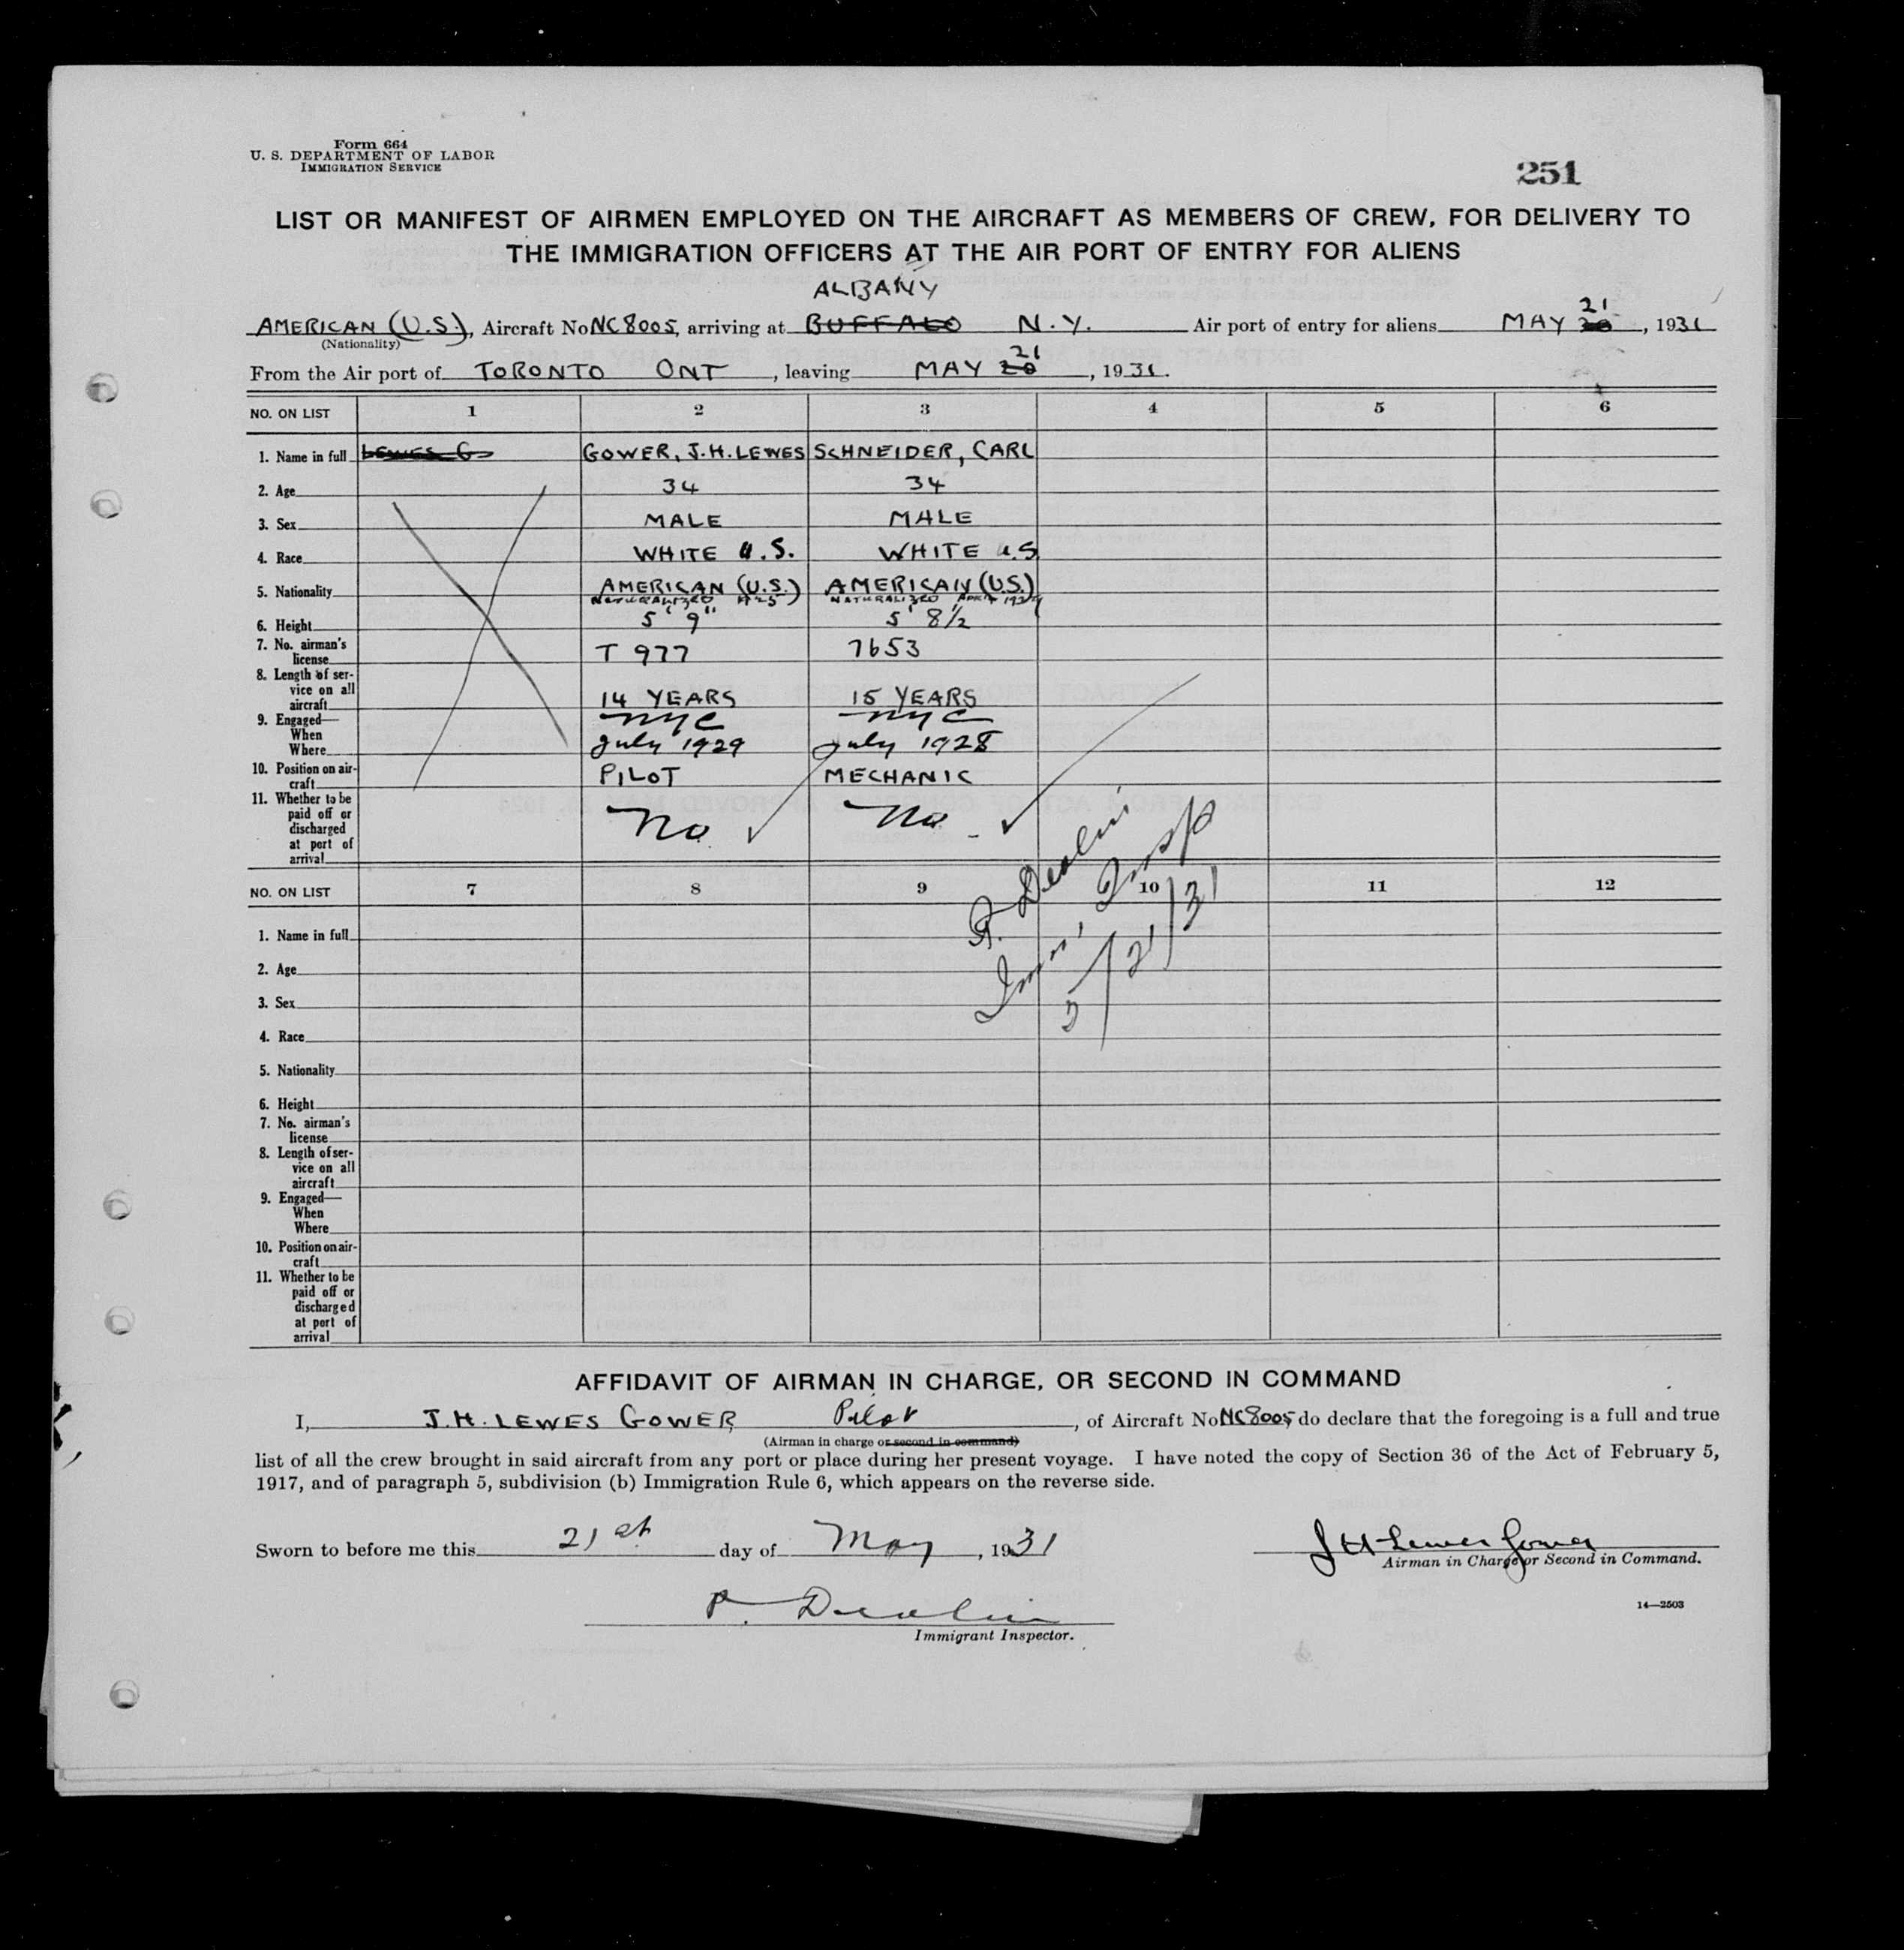 Form 664
U. S. DEPARTMENT OF LABOR
IMMIGRATION SERVICE
251
LIST OR MANIFEST OF AIRMEN EMPLOYED ON THE AIRCRAFT AS MEMBERS OF CREW, FOR DELIVERY TO
THE IMMIGRATION OFFICERS AT THE AIR PORT OF ENTRY FOR ALIENS
ALBANY
21
AMERICAN (U.S.), Aircraft No NC8005, arriving at BUFFALO N.Y. Air port of entry for aliens MAY 20, 1931
(Nationality)
21
From the Air port of TORONTO ONT, leaving MAY 20, 1931.
NO. ON LIST 1 2 3 4 5 6
1. Name in full LEWES G GOWER, J.H. LEWES SCHNEIDER, CARL
2. Age 34 34
3. Sex MALE MALE
4. Race WHITE U.S. WHITE U.S
5. Nationality AMERICAN (U.S.) AMERICAN (U.S.)
NATURALIZED NATURALIZED
6. Height 5' 9" 5' 8 1/2
7. No. airman's
license T 977 7653
8. Length of ser-
vice on all
aircraft 14 YEARS 15 YEARS
9. Engaged— NYC NYC
When
Where July 1929 July 1928
10. Position on air-
craft PILOT MECHANIC
11. Whether to be
paid off or No No
discharged
at port of
arrival
Immi Insp
5/21/31
NO. ON LIST 7 8 9 10 11 12
1. Name in full
2. Age
3. Sex
4. Race
5. Nationality
6. Height
7. No. airman's
license
8. Length of ser-
vice on all
aircraft
9. Engaged—
When
Where
10. Position on air-
craft
11. Whether to be
paid off or
discharged
at port of
arrival
AFFIDAVIT OF AIRMAN IN CHARGE, OR SECOND IN COMMAND
I, J.H. LEWES GOWER Pilot, of Aircraft No NC8005 do declare that the foregoing is a full and true
(Airman in charge or second in command)
list of all the crew brought in said aircraft from any port or place during her present voyage. I have noted the copy of Section 36 of the Act of February 5,
1917, and of paragraph 5, subdivision (b) Immigration Rule 6, which appears on the reverse side.
Sworn to before me this 21st day of May, 1931
J H Lewes Gower
Airman in Charge or Second in Command.
14—2503
Immigrant Inspector.